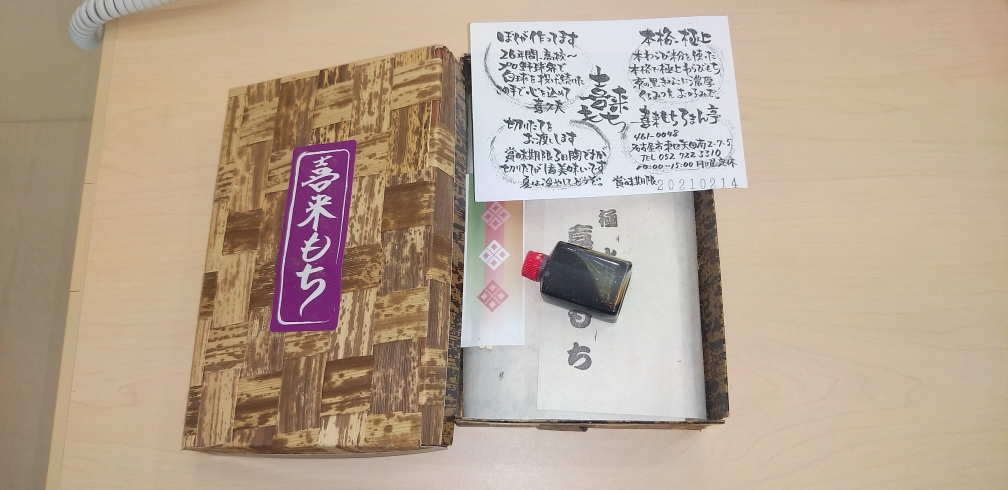 喜来もち
ぼくが作ってます
26年間、高校〜
プロ野球界で
白球を投げ続けた
この手で心を込めて
喜久夫
切りたてを
お渡しします
賞味期限3日間ですが
切りたてが1番美味いです
夏は冷やしてどうぞ。
喜来
もち
本格・極上
本わらび粉を使った
本格で極上わらびもち
京の黒きなこに濃厚
くろみつをおこのみで。
喜来もちろまん亭
461-0048
名古屋市東区矢田南2-7-5
TEL 052 722 5510
10:00-15:00 月曜定休
賞味期限 20210214
極
もち